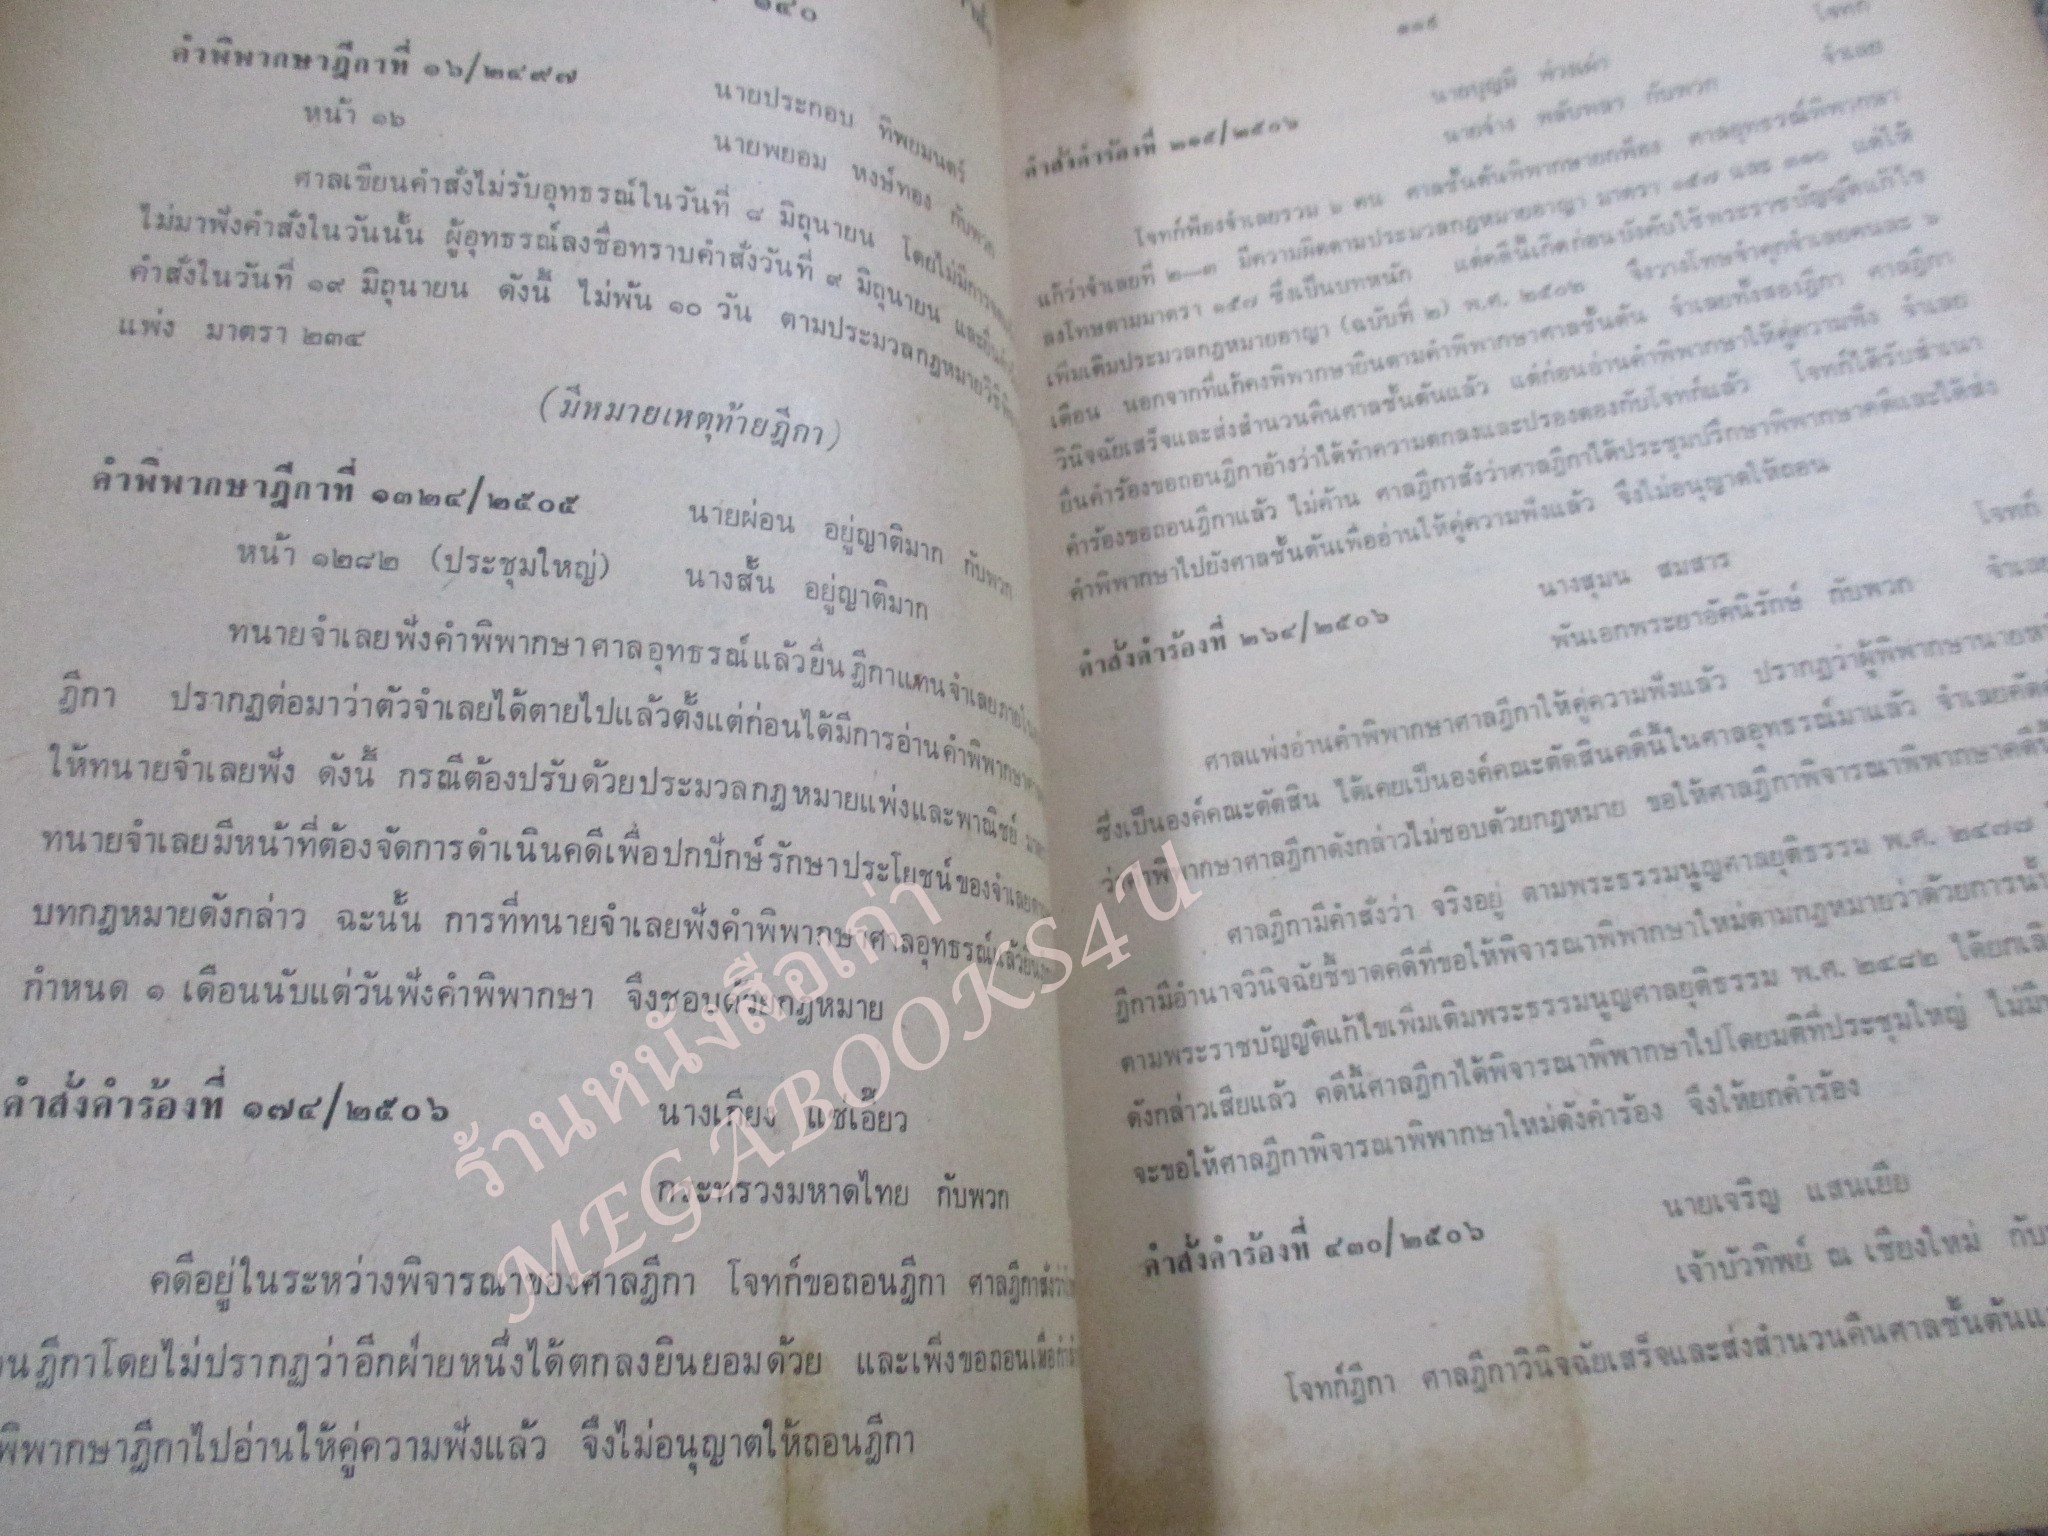 ๒๔๐
คำพิพากษาฎีกาที่ ๑๖/๒๔๙๗
นายประกอบ ทิพยมนตร์
หน้า ๑๖
นายพยอม หงษ์ทอง กับพวก
ศาลเขียนคำสั่งไม่รับอุทธรณ์ในวันที่ ๘ มิถุนายน โดยไม่มีการ
ไม่มาฟังคำสั่งในวันนั้น ผู้อุทธรณ์ลงชื่อทราบคำสั่งวันที่ ๙ มิถุนายน และยื่น
คำสั่งในวันที่ ๑๙ มิถุนายน ดังนี้ ไม่พ้น ๑๐ วัน ตามประมวลกฎหมายวิธี
แพ่ง มาตรา ๒๓๔
(มีหมายเหตุท้ายฎีกา)
คำพิพากษาฎีกาที่ ๑๓๒๔/๒๕๐๕
นายผ่อน อยู่ญาติมาก กับพวก
หน้า ๑๒๘๒ (ประชุมใหญ่)
นางสั้น อยู่ญาติมาก
ทนายจำเลยฟังคำพิพากษาศาลอุทธรณ์แล้วยื่นฎีกาแทนจำเลยภายใน
ฎีกา ปรากฏต่อมาว่าตัวจำเลยได้ตายไปแล้วตั้งแต่ก่อนได้มีการอ่านคำพิพากษา
ให้ทนายจำเลยฟัง ดังนี้ กรณีต้องปรับด้วยประมวลกฎหมายแพ่งและพาณิชย์
ทนายจำเลยมีหน้าที่ต้องจัดการดำเนินคดีเพื่อปกปักษ์รักษาประโยชน์ของจำเลย
บทกฎหมายดังกล่าว ฉะนั้น การที่ทนายจำเลยฟังคำพิพากษาศาลอุทธรณ์แล้ว
กำหนด ๑ เดือนนับแต่วันฟังคำพิพากษา จึงชอบด้วยกฎหมาย
คำสั่งคำร้องที่ ๑๗๔/๒๕๐๖
นางเกียง แซ่เอี้ยว
กระทรวงมหาดไทย กับพวก
คดีอยู่ในระหว่างพิจารณาของศาลฎีกา โจทก์ขอถอนฎีกา ศาลฎีกาสั่งว่า
นฎีกาโดยไม่ปรากฏว่าอีกฝ่ายหนึ่งได้ตกลงยินยอมด้วย และเพิ่งขอถอนเมื่อ
พิพากษาฎีกาไปอ่านให้คู่ความฟังแล้ว จึงไม่อนุญาตให้ถอนฎีกา
โจทก์
นายบุญมี
จำเลย
คำสั่งคำร้องที่ ๒๑๕/๒๕๐๖
นายจ่าง พลับพลา กับพวก
โจทก์ฟ้องจำเลยรวม ๖ คน ศาลชั้นต้นพิพากษายกฟ้อง ศาลอุทธรณ์พิพากษา
แก้ว่าจำเลยที่ ๒—๓ มีความผิดตามประมวลกฎหมายอาญา มาตรา ๑๕๗ และ ๓๑๐ แต่ให้
ลงโทษตามมาตรา ๑๕๗ ซึ่งเป็นบทหนัก แต่คดีนี้เกิดก่อนบังคับใช้พระราชบัญญัติแก้ไข
เพิ่มเติมประมวลกฎหมายอาญา (ฉบับที่ ๒) พ.ศ. ๒๕๐๒ จึงวางโทษจำคุกจำเลยคนละ ๖
เดือน นอกจากที่แก้คงพิพากษายืนตามคำพิพากษาศาลชั้นต้น จำเลยทั้งสองฎีกา ศาลฎีกา
วินิจฉัยเสร็จและส่งสำนวนคืนศาลชั้นต้นแล้ว แต่ก่อนอ่านคำพิพากษาให้คู่ความฟัง จำเลย
ยื่นคำร้องขอถอนฎีกาอ้างว่าได้ทำความตกลงและปรองดองกับโจทก์แล้ว โจทก์ได้รับสำเนา
คำร้องขอถอนฎีกาแล้ว ไม่ค้าน ศาลฎีกาสั่งว่าศาลฎีกาได้ประชุมปรึกษาพิพากษาคดีและได้ส่ง
คำพิพากษาไปยังศาลชั้นต้นเพื่ออ่านให้คู่ความฟังแล้ว จึงไม่อนุญาตให้ถอน
โจทก์
นางสุมน สมสาร
จำเลย
คำสั่งคำร้องที่ ๒๖๔/๒๕๐๖
พันเอกพระยาอัคนิรักษ์ กับพวก
ศาลแพ่งอ่านคำพิพากษาศาลฎีกาให้คู่ความฟังแล้ว ปรากฏว่าผู้พิพากษานาย
ซึ่งเป็นองค์คณะตัดสิน ได้เคยเป็นองค์คณะตัดสินคดีนี้ในศาลอุทธรณ์มาแล้ว จำเลยคัด
ว่าคำพิพากษาศาลฎีกาดังกล่าวไม่ชอบด้วยกฎหมาย ขอให้ศาลฎีกาพิจารณาพิพากษาคดี
ศาลฎีกามีคำสั่งว่า จริงอยู่ ตามพระธรรมนูญศาลยุติธรรม พ.ศ. ๒๔๗๗
ฎีกามีอำนาจวินิจฉัยชี้ขาดคดีที่ขอให้พิจารณาพิพากษาใหม่ตามกฎหมายว่าด้วยการนั้น
ตามพระราชบัญญัติแก้ไขเพิ่มเติมพระธรรมนูญศาลยุติธรรม พ.ศ. ๒๔๘๒ ได้ยกเลิก
ดังกล่าวเสียแล้ว คดีนี้ศาลฎีกาได้พิจารณาพิพากษาไปโดยมติที่ประชุมใหญ่ ไม่มี
จะขอให้ศาลฎีกาพิจารณาพิพากษาใหม่ดังคำร้อง จึงให้ยกคำร้อง
นายเจริญ แสนเยีย
คำสั่งคำร้องที่ ๔๓๐/๒๕๐๖
เจ้าบัวทิพย์ ณ เชียงใหม่ กับ
โจทก์ฎีกา ศาลฎีกาวินิจฉัยเสร็จและส่งสำนวนคืนศาลชั้นต้น
ร้านหนังสือเก่า
MEGABOOKS4U